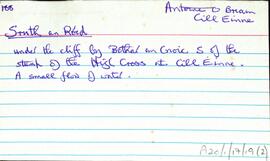 188
Antoine Ó Briain
Cill Éinne
South an Róid
under the cliff by Bóthar an Croic S of the
steup of the High Cross at Cill Éinne.
A small flow of water.
A201/17/19(2)